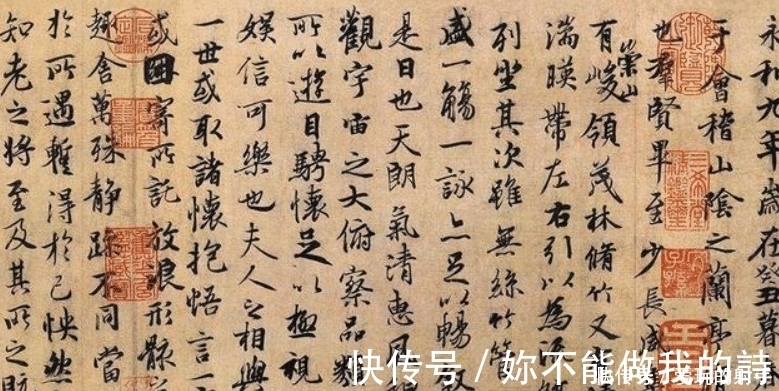 永和九年歲在癸丑暮
于會稽山陰之蘭亭
也群賢畢至少長咸
有崇山峻領茂林脩竹又
湍暎帶左右引以為流
列坐其次雖無絲竹管
盛一觴一詠亦足以暢
是日也天朗氣清惠風
觀宇宙之大俯察品類
所以遊目騁懷足以極視
娛信可樂也夫人之相與
一世或取諸懷抱悟言一
或因寄所託放浪形骸
趣舍萬殊靜躁不同當
於所遇蹔得於己怏然
知老之將至及其所之既
快传号 / 妳不能做我的詩